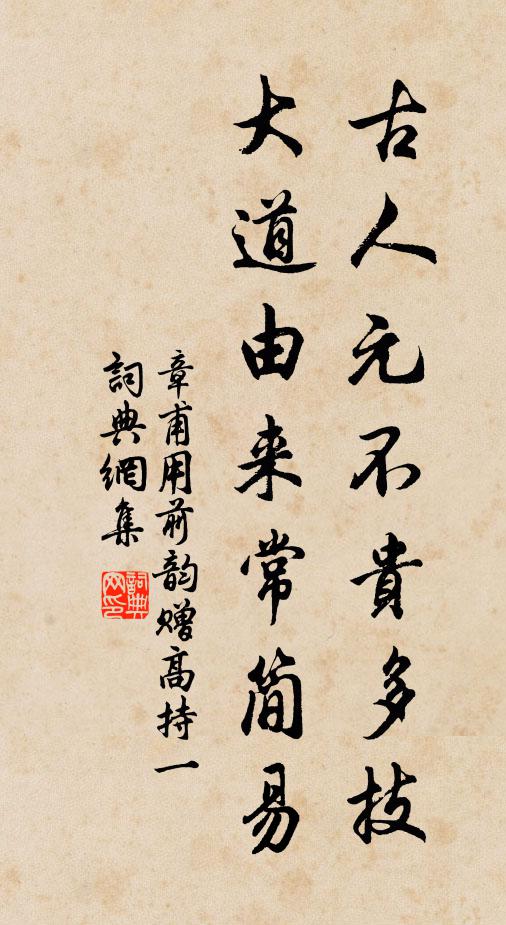 古人元不貴多技
大道由来常简易
章甫用前韵赠高持一
詞典網集
詞典网印